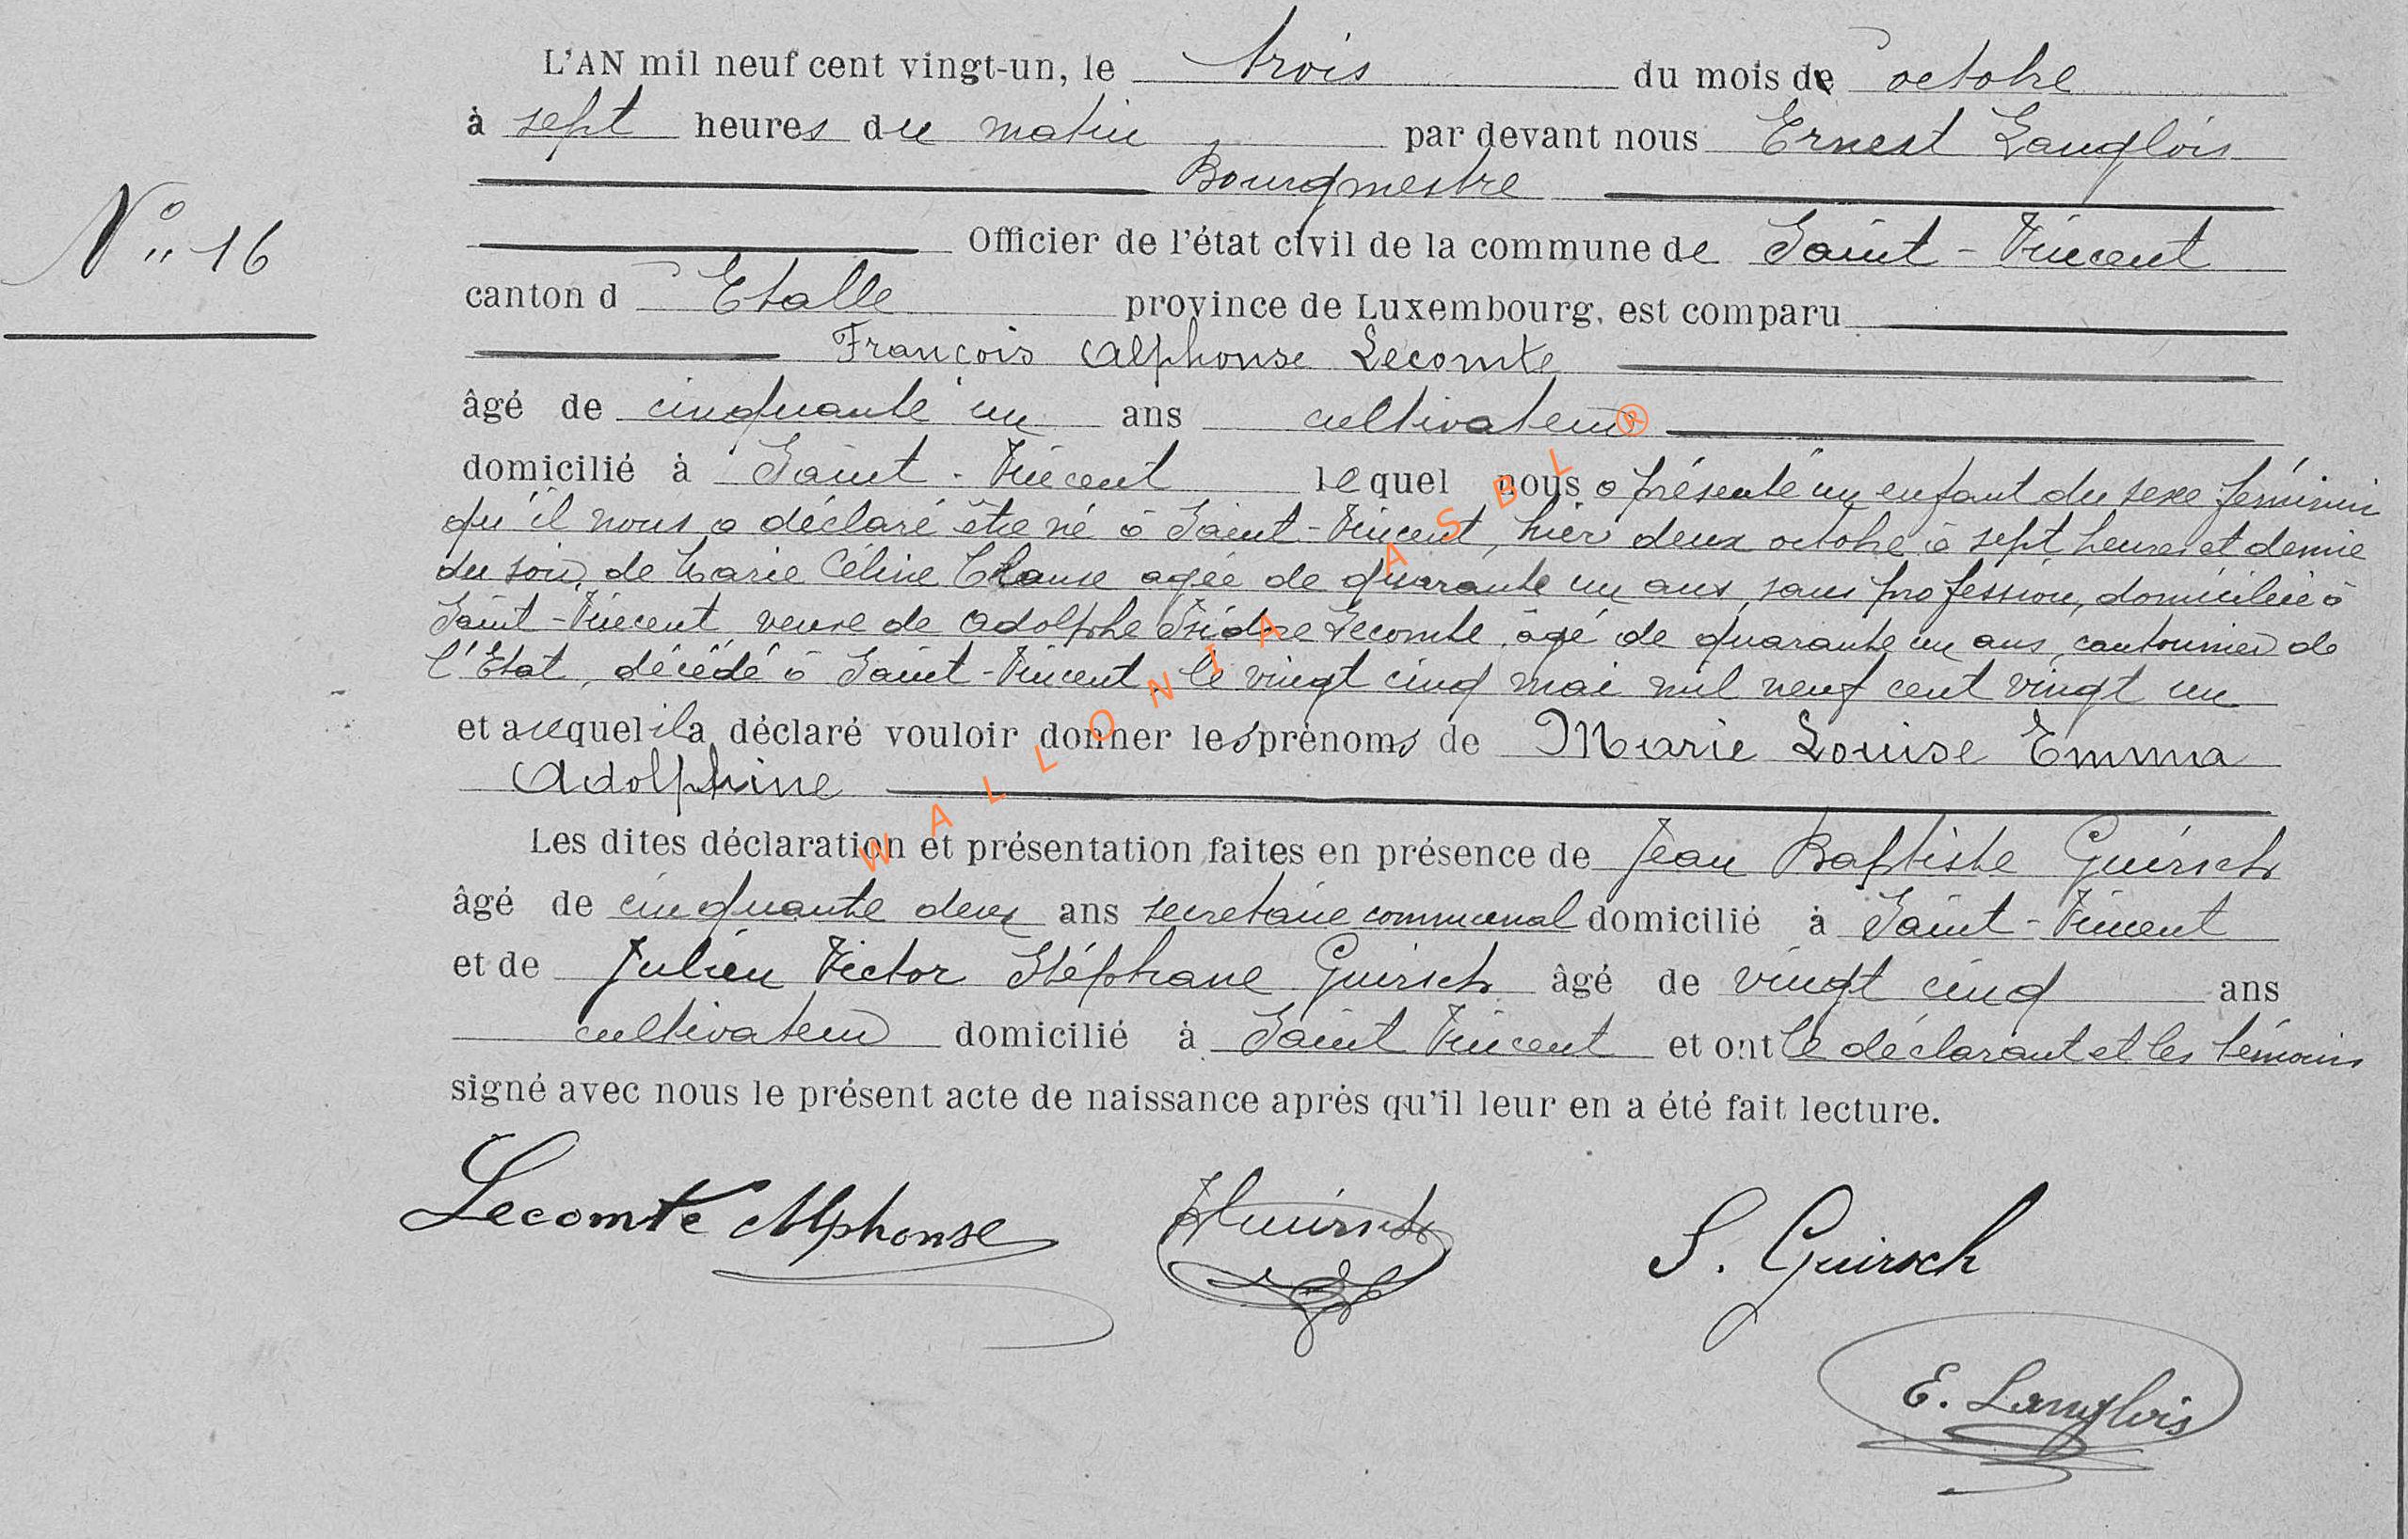 L'AN mil neuf cent vingt-un, le trois du mois de octobre
à sept heures du matin par devant nous Ernest Langlois
Bourgmestre
N° 16
Officier de l'état civil de la commune de Saint-Vincent
canton d Etalle province de Luxembourg, est comparu
François Alphonse Lecomte
âgé de cinquante un ans cultivateur
domicilié à Saint-Vincent lequel nous a présenté un enfant du sexe féminin
qu'il nous a déclaré être né à Saint-Vincent, hier deux octobre à sept heures et demie
du soir, de Marie Céline Clause agée de quarante un ans, sans profession, domiciliée à
Saint-Vincent veuve de Adolphe Isidore Lecomte, âgé de quarante un ans, cantonnier de
l'Etat, décédé à Saint-Vincent, le vingt cinq mai mil neuf cent vingt un
et auquel il a déclaré vouloir donner les prénoms de Marie Louise Emma
Adolphine
Les dites déclaration et présentation faites en présence de Jean Baptiste Guirsch
âgé de cinquante deux ans secretaire communal domicilié à Saint-Vincent
et de Julien Victor Stéphane Guirsch âgé de vingt cinq ans
cultivateur domicilié à Saint Vincent et ont le déclarant et les témoins
signé avec nous le présent acte de naissance après qu'il leur en a été fait lecture.
Lecomte Alphonse
S. Guirsch
E. Langlois
WALLONIA ASBL ®